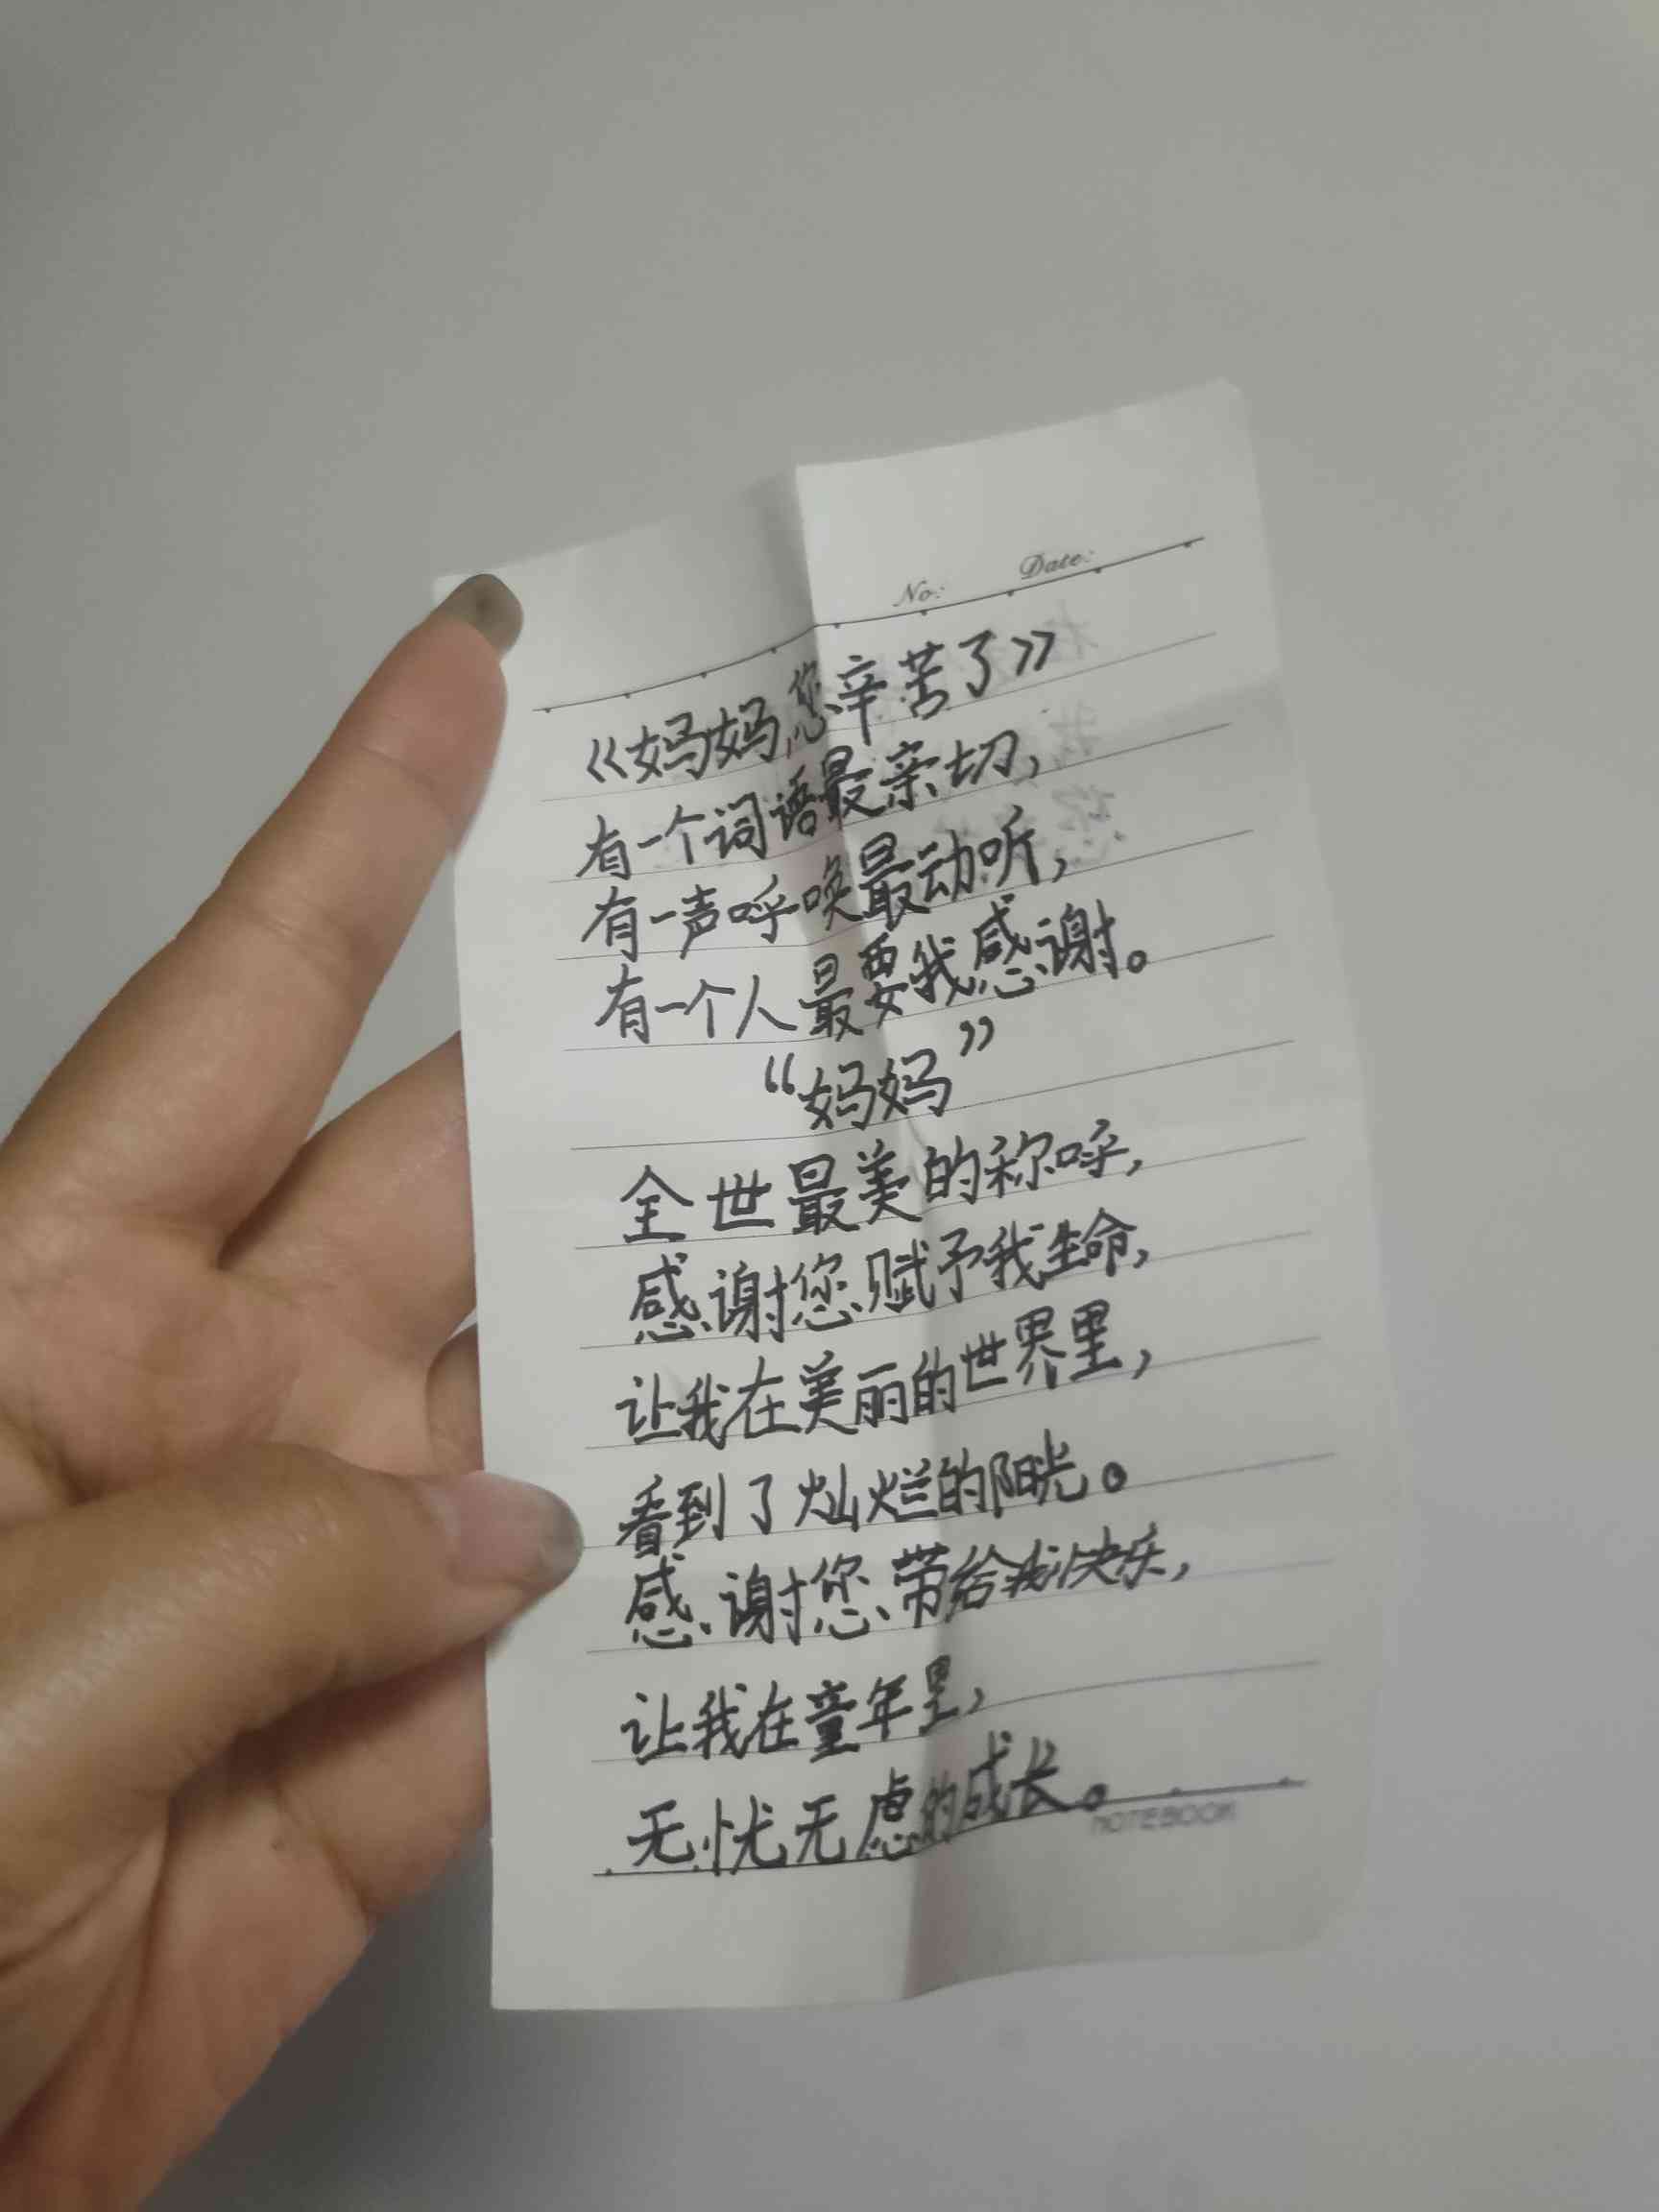 No: Date:
《妈妈您辛苦了》
有一个词语最亲切,
有一声呼唤最动听,
有一个人最要我感谢。
“妈妈”
全世最美的称呼,
感谢您赋予我生命,
让我在美丽的世界里,
看到了灿烂的阳光。
感谢您带给我快乐,
让我在童年里,
无忧无虑的成长。
NOTEBOOK